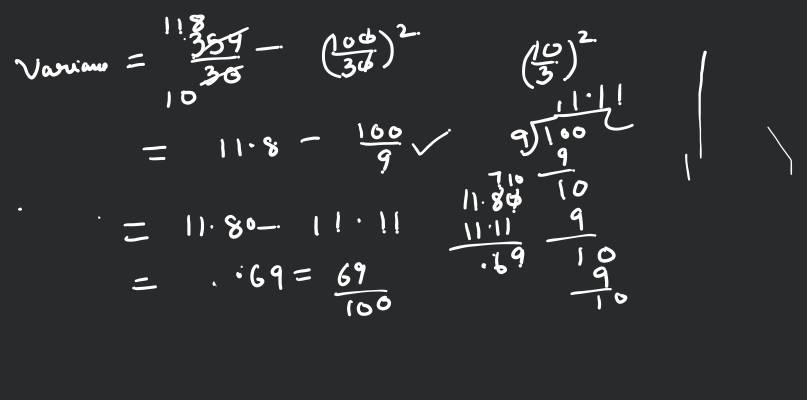 Variance = 118 354/30 10 - (100/30)² (10/3)²
= 11.8 - 100/9 ✓ 9)100 11.11
9
710 10
= 11.80 - 11.11 11.80 9
11.11 10
= .69 = 69/100 .69 9
10